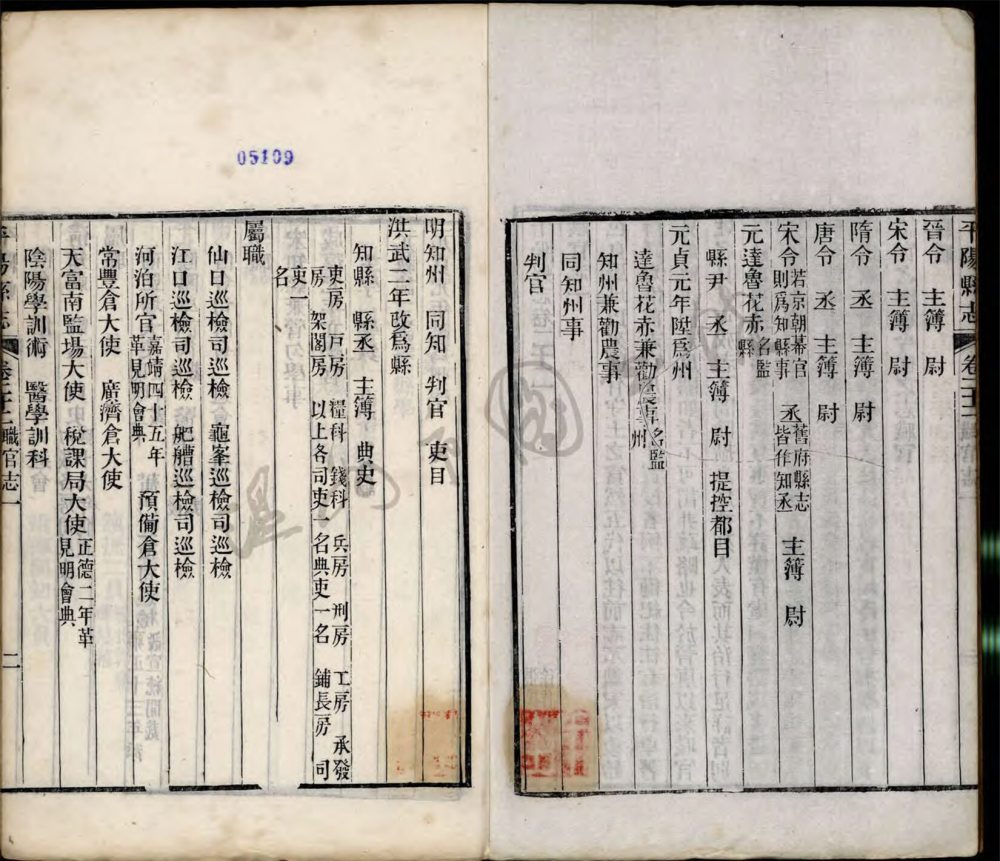 平陽縣志　卷二十二
晉令　主簿　尉
宋令　主簿　尉
隋令　丞　主簿　尉
唐令　丞　主簿　尉
宋令若京朝幕官則爲知縣事　丞舊府縣志皆作知丞　主簿　尉
元達魯花赤名監縣
縣尹　丞　主簿　尉　提控都目
元貞元年陞爲州
達魯花赤兼勸農事名監州
知州兼勸農事
同知州事
判官
05109
明知州　同知　判官　吏目
洪武二年改爲縣
知縣　縣丞　主簿　典史
吏房　戶房　糧科　錢科　兵房　刑房　工房　承發
房　架閣房　以上各司吏一名典吏一名　鋪長房　司
吏一
名
屬職
仙口巡檢司巡檢　龜峯巡檢司巡檢
江口巡檢司巡檢　舥艚巡檢司巡檢
河泊所官嘉靖四十五年革見明會典　預備倉大使
常豐倉大使　廣濟倉大使
天富南監場大使　稅課局大使正德二年革見明會典
陰陽學訓術　醫學訓科
平陽縣志　卷二十二　職官志一　二